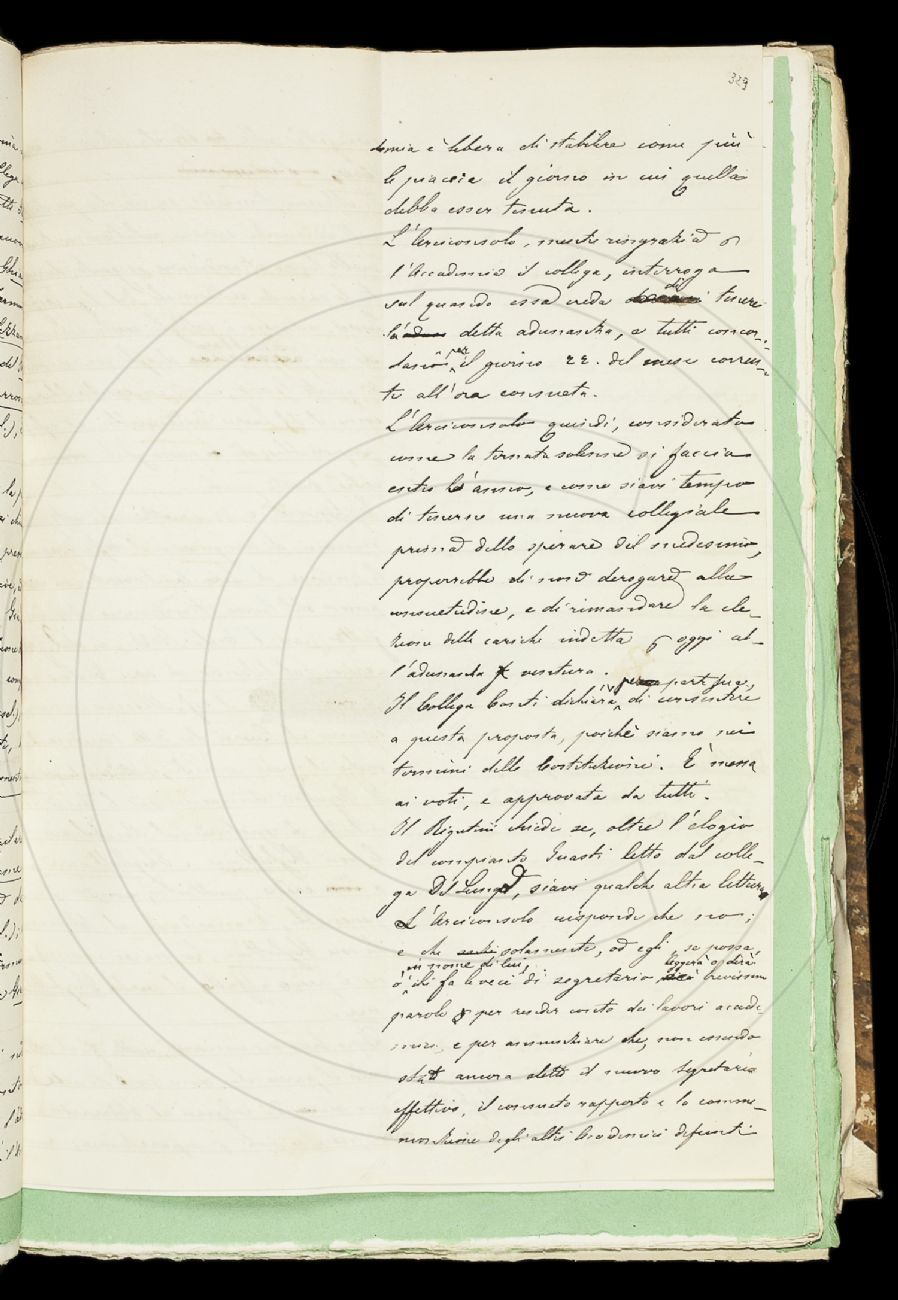 329
demia è libera di stabilire come più
le piaccia il giorno in cui quella
debba esser tenuta.
L'Arciconsolo, mentre ringrazia
l'Accademia il collega, interroga
sul quando essa creda di tenere
la detta adunanza, e tutti concor-
dano per il giorno 22. del mese corren-
te all'ora consueta.
L'Arciconsolo quindi, considerato
come la tornata solenne si faccia
entro l'anno, e come siavi tempo
di tenerne una nuova collegiale
prima dello spirare del medesimo,
proporrebbe di non derogare alla
consuetudine, e di rimandare la ele-
zione delle cariche indetta p oggi al-
l'adunanza ventura.
Il Collega Conti dichiara, per parte sua,
di consentire
a questa proposta, poichè siamo nei
termini delle Costituzioni. È messa
ai voti, e approvata da tutti.
Il Rigutini chiede se, oltre l'elogio
del compianto Guasti letto dal colle-
ga Del Lungo, siavi qualche altra lettura
L'Arciconsolo risponde che no;
e che solamente, od egli, se possa,
o in nome di lui, chi fa le veci di segretario leggerà o dirà brevissime
parole per render conto dei lavori accade-
mici, e per annunziare che, non essendo
stato ancora eletto il nuovo Segretario
effettivo, il consueto rapporto e la comme-
morazione degli altri Accademici defunti